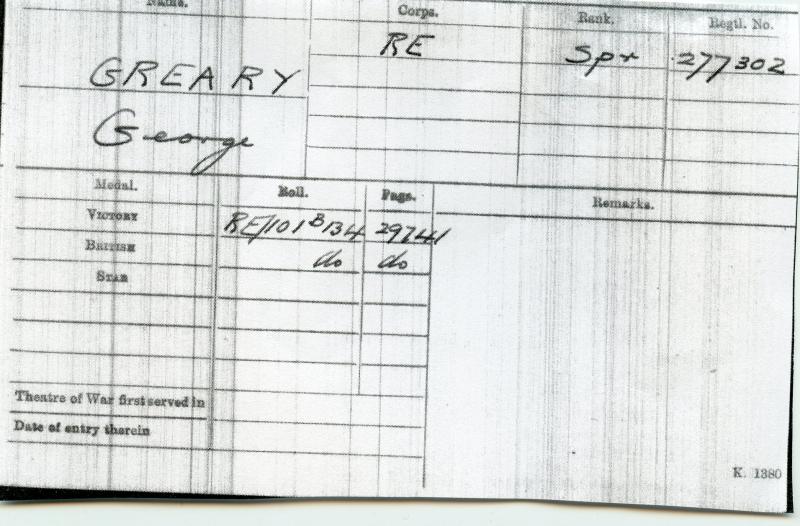 Name. Corps. Rank. Regtl. No.
GREARY RE Spr 277302
George
Medal. Roll. Page. Remarks.
VICTORY RE/101 B 134 29741
BRITISH do do
STAR
Theatre of War first served in
Date of entry therein
K. 1380